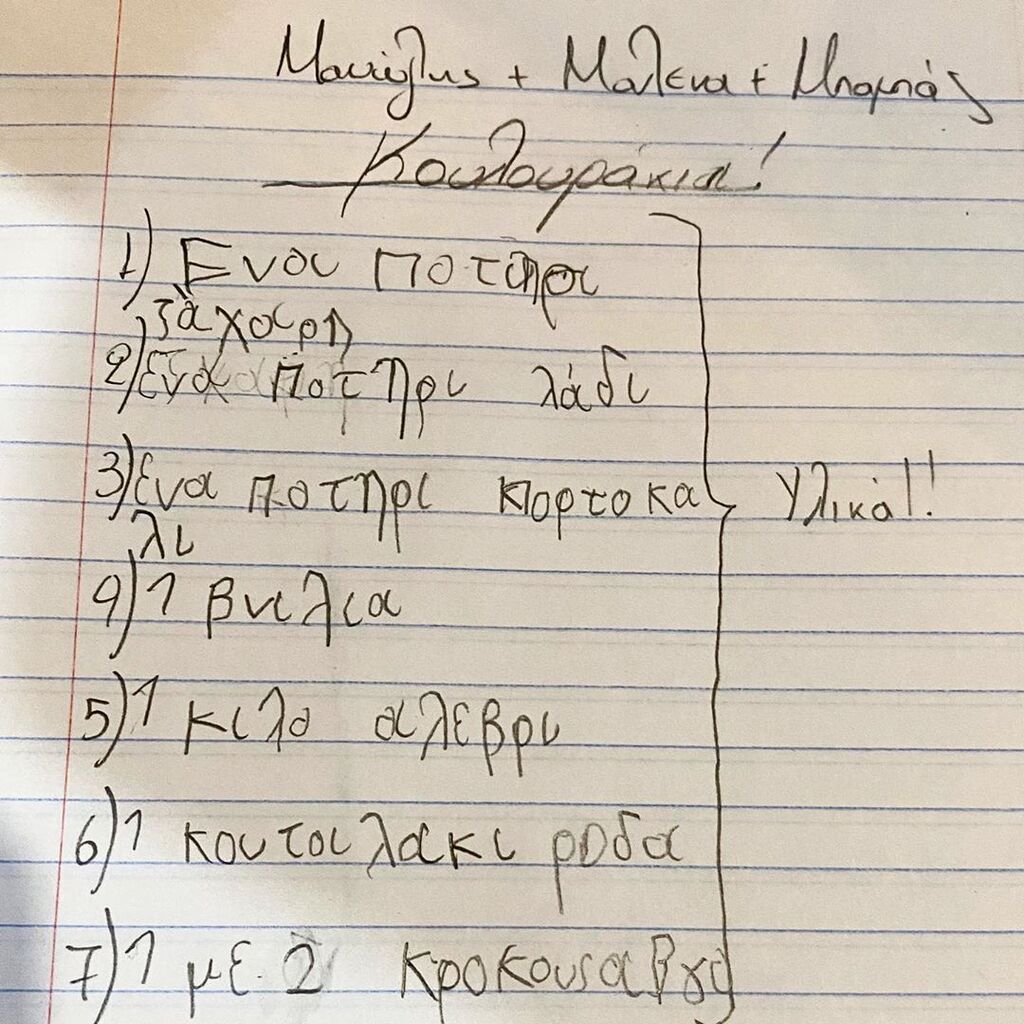 Μανώλης + Μαλενα + Μπαμπάς
Κουλουράκια!
1) Ενα ποτηρι
ζάχαρη
2) ενα ποτηρι λάδι
3) ενα ποτηρι πορτοκα
λι
Υλικά!!
4) 1 βνιλια
5) 1 κιλο αλεβρι
6) 1 κουταλακι ροδα
7) 1 με 2 κροκους αβγο